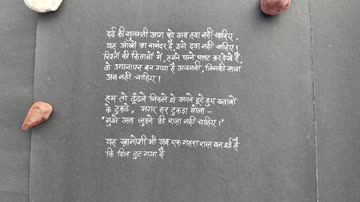 दर्द की सुलगती आग को अब हवा नहीं चाहिए,
यह आँखों का समंदर है, इसे दवा नहीं चाहिए।
रिश्तों की किताबों में, हमने पन्ने पलट कर देखे हैं,
जो अपनापन बन गया है अजनबी, जिसकी सजा
अब नहीं चाहिए।
हम तो ढूँढने निकले थे अपने टूटे हुए ख्वाबों
के टुकड़े, मगर हर टुकड़ा बोला –
"मुझे अब जुड़ने की सजा नहीं चाहिए।"
यह खामोशी भी अब एक गहरा राज बन गई है
कि दिल टूट गया है